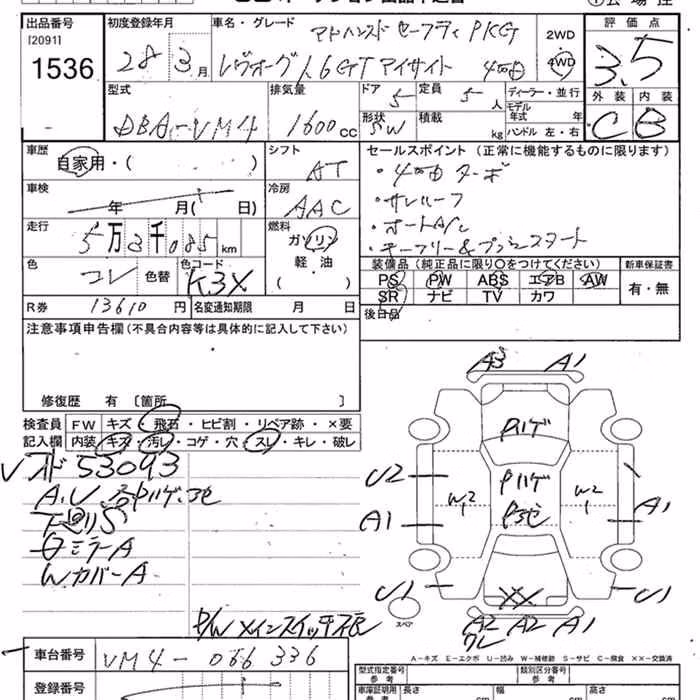 出品番号 初度登録年月 車名・グレード アドバンスド セーフティ PKG 2WD 評価点
[2091] 1536 28 3月 レヴォーグ 1.6GT アイサイト 4WD 3.5
型式 排気量 ドア 5 定員 5人 ディーラー・並行 外装 内装
DBA-VM4 1600cc 形状 SW 積載 kg モデル年式 年 ハンドル 左・右 C B
車歴 自家用・( ) シフト AT セールスポイント (正常に機能するものに限ります)
車検 年 月( 日) 冷房 AAC ・4WD ターボ
・サンルーフ
走行 5万3千085km 燃料 ガソリン 軽・油 ・オートA/C
・キーフリー&プッシュスタート
色 コン 色替 色コード K3X 装備品 (純正品に限り○をつけてください) 新車保証書
PS PW ABS エアB AW 有・無
SR ナビ TV カワ
R券 13610円 名変通知期限 月 日 後日品
注意事項申告欄 (不具合内容等は具体的に記入して下さい)
修復歴 有 [箇所 ]
検査員 FW キズ・飛石・ヒビ割・リペア跡・×要
記入欄 内装 キズ・汚レ・コゲ・穴・スレ・キレ・破レ
A3 A1
53093
A.U
下廻りS
ミラーA
WカバーA
U2 W2 1 W2 1
A1 A1
U1 XX U1
スペア
P/W メインスイッチ不良
A2 A2 A1
車台番号 VM4-066336
A-キズ E-エクボ U-凹み W-補修跡 S-サビ C-腐食 ××-交換済
型式指定番号 参考 類別区分番号 参考
登録番号 車庫証明用 参考 長さ cm 幅 cm 高さ cm